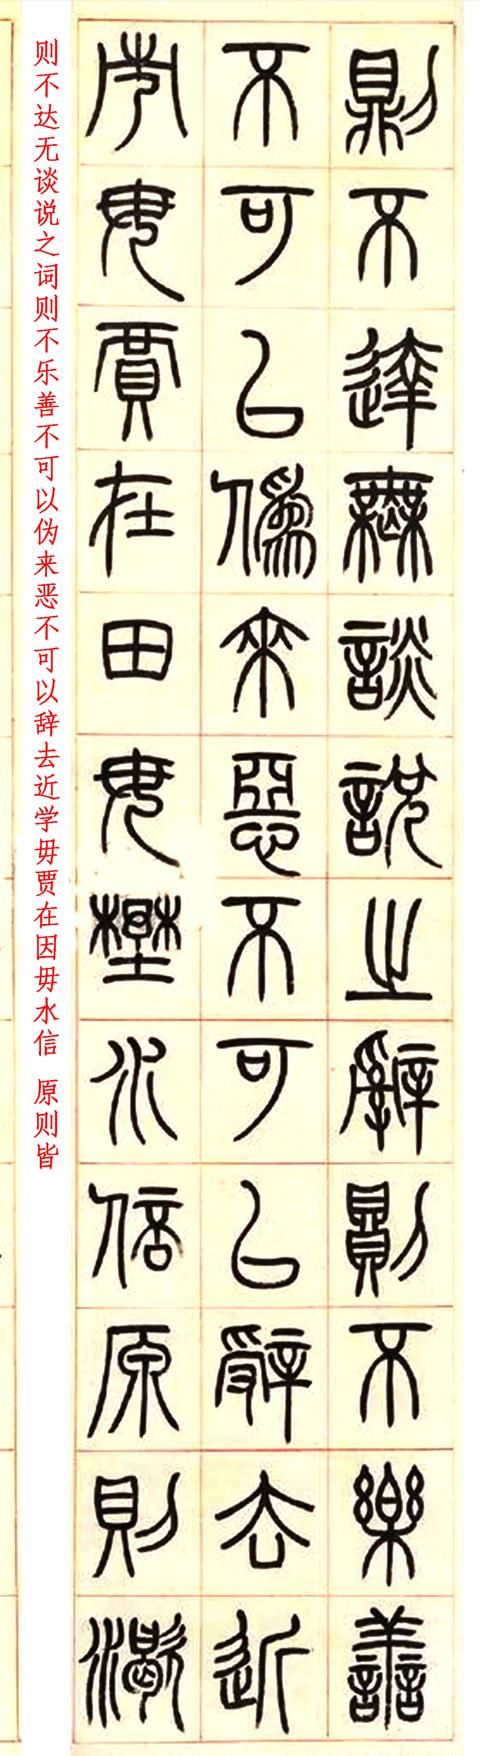 則不達無談說之辭則不樂善
不可以偽來惡不可以辭去近
市毋賈在田毋壄水倍原則㵣
则不达无谈说之词则不乐善不可以伪来恶不可以辞去近学毋贾在因毋水信 原则皆